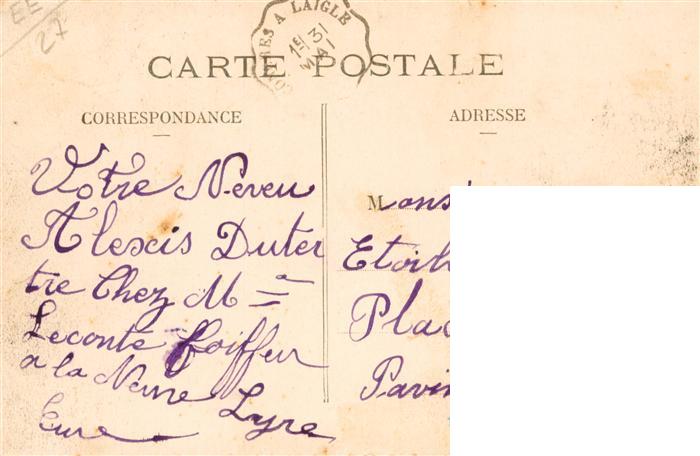 EE
27
A LAIGLE
1E 31
CARTE POSTALE
CORRESPONDANCE
ADRESSE
Votre Neveu
Alexis Duter
tre Chez M
Leconte Coiffeur
a la Neuve Lyre
Eure
Mons
Etoil
Plac
Pavi